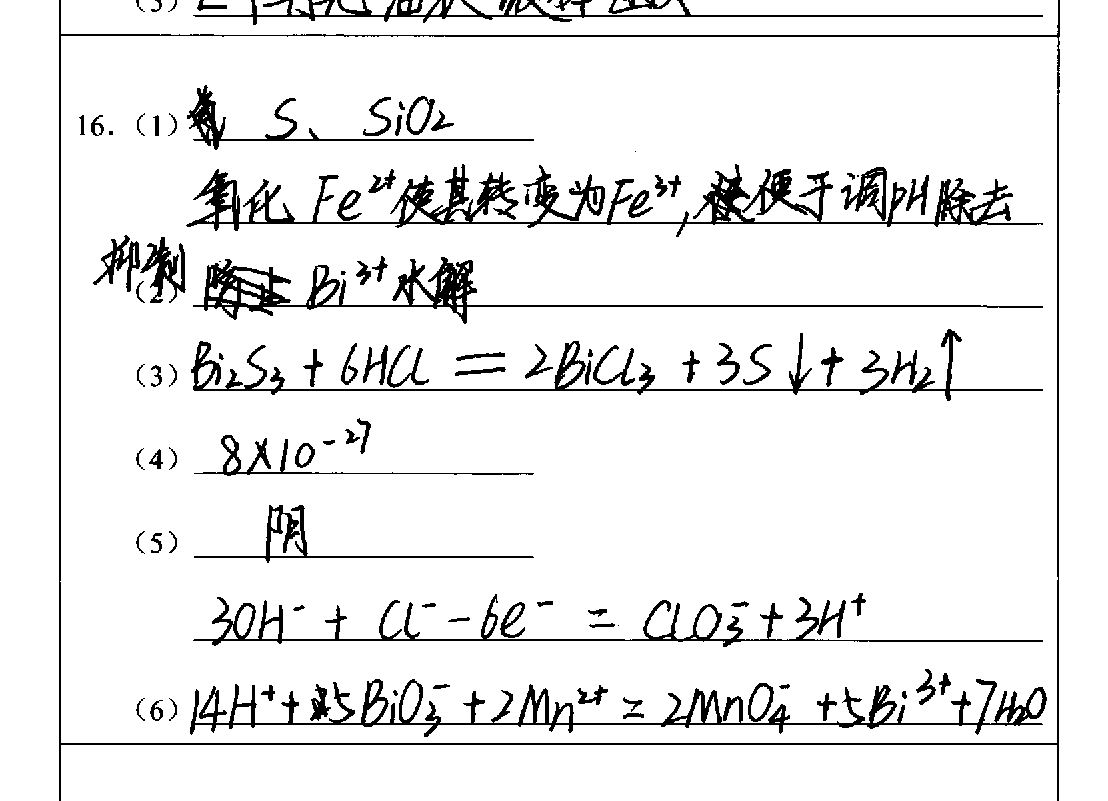 16.（1） S、SiO₂
氧化 Fe²⁺使其转变为Fe³⁺，便于调pH除去
（2）抑制 Bi³⁺水解
（3）Bi₂S₃ + 6HCl = 2BiCl₃ + 3S↓ + 3H₂↑
（4）8×10⁻²⁷
（5）阴
3OH⁻ + Cl⁻ - 6e⁻ = ClO₃⁻ + 3H⁺
（6）14H⁺ + 5BiO₃⁻ + 2Mn²⁺ = 2MnO₄⁻ + 5Bi³⁺ + 7H₂O